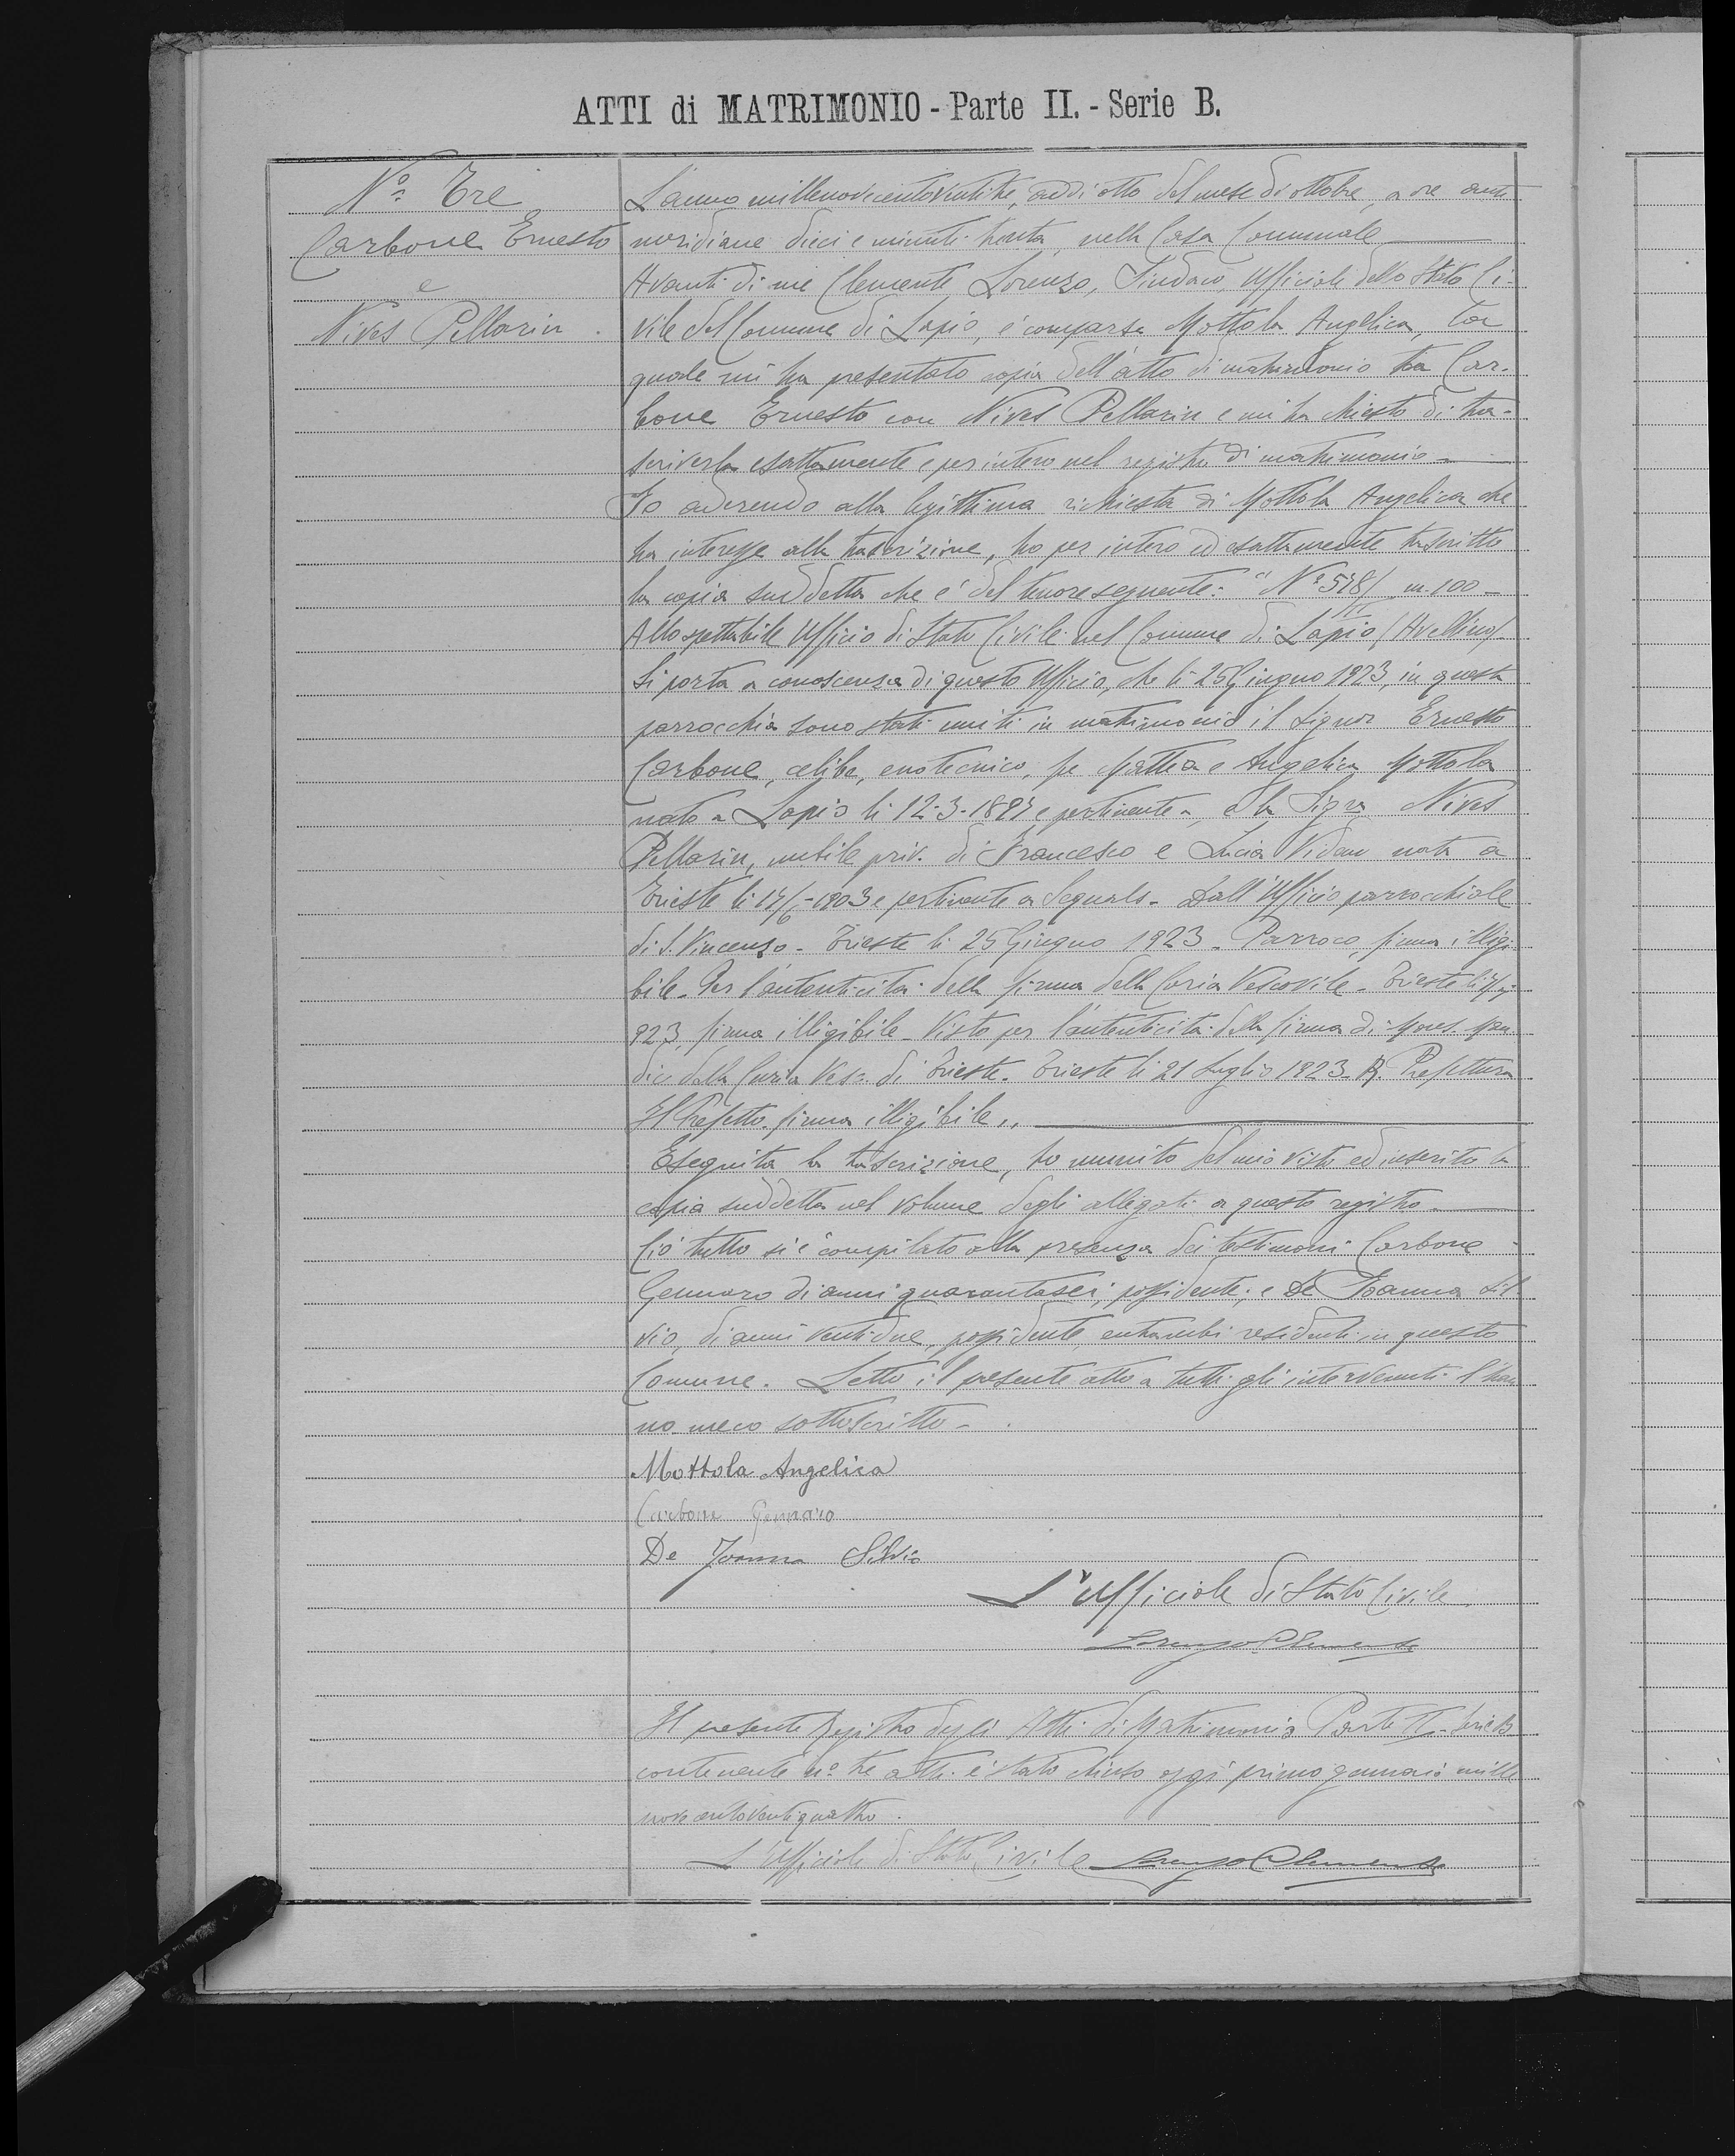 ATTI di MATRIMONIO - Parte II. - Serie B.
Nº Tre
Carbone Ernesto
e
Nives Pellarin.
L'anno millenovecentoventitre, addì otto del mese di ottobre, a ore anti
meridiane dieci e minuti trenta, nella Casa Comunale
Avanti di me Clemente Lorenzo, Sindaco, Ufficiale dello Stato Ci-
vile del Comune di Lapio, è comparsa Mottola Angelica, la
quale mi ha presentato copia dell'atto di matrimonio tra Car-
bone Ernesto con Nives Pellarin e mi ha chiesto di tra-
scriverla esattamente e per intero nel registro di matrimonio -
Io aderendo alla legittima richiesta di Mottola Angelica che
ha interesse alla trascrizione, ho per intero ed esattamente trascritto
la copia suddetta che è del tenore seguente: " Nº 518/ m. 100 -
Allo spettabile Ufficio di Stato Civile nel Comune di Lapio (Avellino)
Si porta a conoscenza di questo Ufficio, che li 25 Giugno 1923, in questa
parrocchia sono stati uniti in matrimonio il Signor Ernesto
Carbone, celibe, enotecnico, fu Mattia e Angelica Mottola
nato a Lapio li 12-3-1891 e pertinente a, e la Sigra Nives
Pellarin, nubile priv. di Francesco e Lucia Vidau nata a
Trieste li 14/6-1903 e pertinente a Sequals - Dall'Ufficio parrocchiale
di S. Vincenzo - Trieste li 25 Giugno 1923 - Parroco, firma illigi-
bile - Per l'autenticità della firma della Curia Vescovile - Trieste li
923, firma illigibile - Visto per l'autenticità della firma di Mons.
della Curia Vesc. di Trieste - Trieste li 21 Luglio 1923 - R. Prefettura
Il Prefetto - firma illigibile "
Eseguita la trascrizione, ho munito del mio visto ed inserito la
copia suddetta nel volume degli allegati a questo registro -
Ciò tutto si è compilato alla presenza dei testimoni Carbone
Gennaro di anni quarantasei, possidente, e De Joanna Sil
vio, di anni ventidue, possidente, entrambi residenti in questo
Comune. Letto il presente atto a tutti gli intervenuti l'han
no meco sottoscritto -
Mottola Angelica
Carbone Gennaro
De Joanna Silvio
L'Ufficiale di Stato Civile
Lorenzo Clemente
Il presente Registro degli Atti di Matrimonio Parte II - Serie B
contenente nº tre atti è stato chiuso oggi primo gennaio mille
novecentoventiquattro.
L'Ufficiale di Stato Civile Lorenzo Clemente